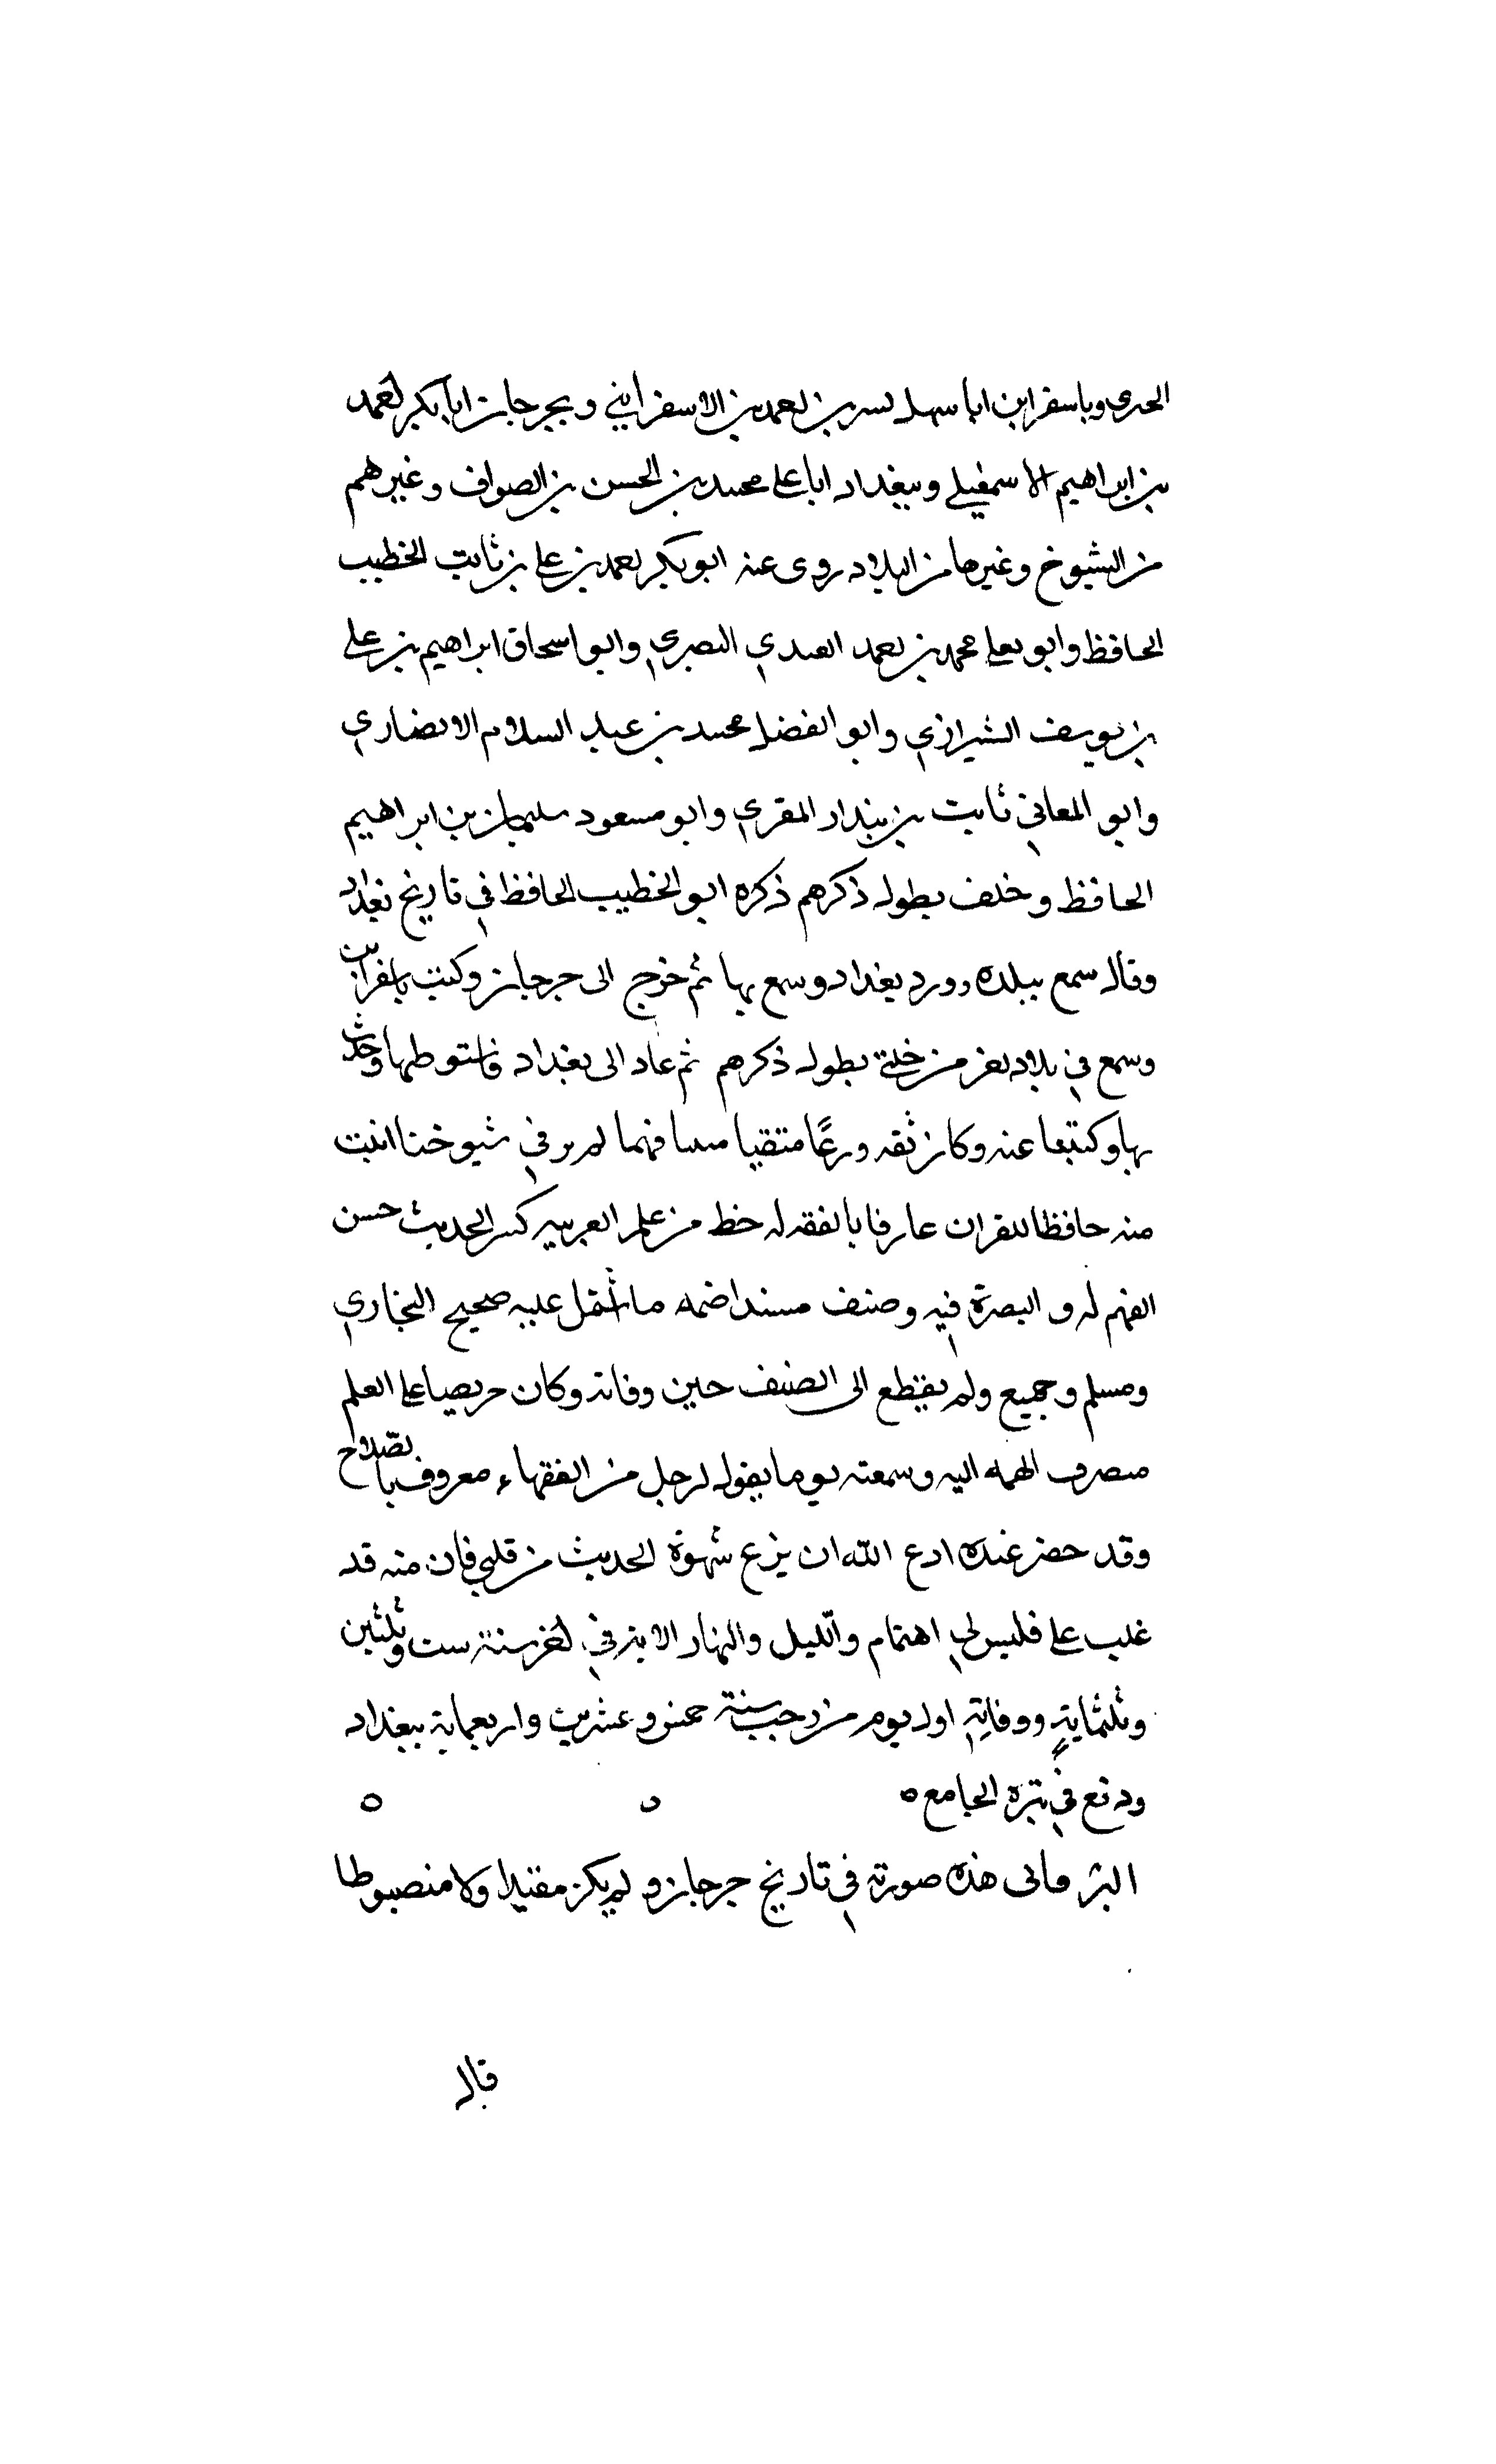 الحيري وباسفراين ابا سهل بسر بن احمد بن الاسفرايني وبجرجان ابا بكر احمد
بن ابراهيم الاسمعيلي وببغداد ابا علي محمد بن الحسن بن الصواف وغيرهم
من الشيوخ وغيرها من البلاد روى عنه ابو بكر احمد بن علي بن ثابت الخطيب
الحافظ وابو يعلى محمد بن احمد العبدي البصري وابو اسحاق ابراهيم بن علي
بن يوسف الشيرازي وابو الفضل محمد بن عبد السلام الانصاري
وابو المعاني ثابت بن بندار المقري وابو مسعود سليمان بن ابراهيم
الحافظ وخلف يطول ذكرهم ذكره ابو الخطيب الحافظ في تاريخ بغداد
وقال سمع ببلده وورد بغداد وسمع بها ثم خرج الى جرجان وكتب باسفراين
وسمع في بلاد اخر من خلق يطول ذكرهم ثم عاد الى بغداد فاستوطنها وحدث
بها وكتبنا عنه وكان ثقه ورعًا متقيا متثبتا فهما لم نر في شيوخنا اثبت
منه حافظا للقران عارفا بالفقه له حظ من علم العربيه كثير الحديث حسن
الفهم له و البصرة فيه وصنف مسندا ضمه ما اشتمل عليه صحيح البخاري
ومسلم وجميع ولم يقطع الى الصنيف حين وفاته وكان حريصا على العلم
منصرف الهمه اليه وسمعته يوما يقول لرجل من الفقهاء معروف بالصلاح
وقد حضر عنده ادع الله ان ينزع شهوة الحديث من قلبي فان منه قد
غلب علي فليس لي اهتمام والليل والنهار الا به في اخر سنة ست وثلثين
وثلثماية ووفاته اول يوم من رجب سنة خمس وعشرين واربعماية ببغداد
ودفع في تبره الجامع ه
البثر مانى هذه صورته في تاريخ جرجان ولم يكن مقيدا ولا منضبوطا
قال